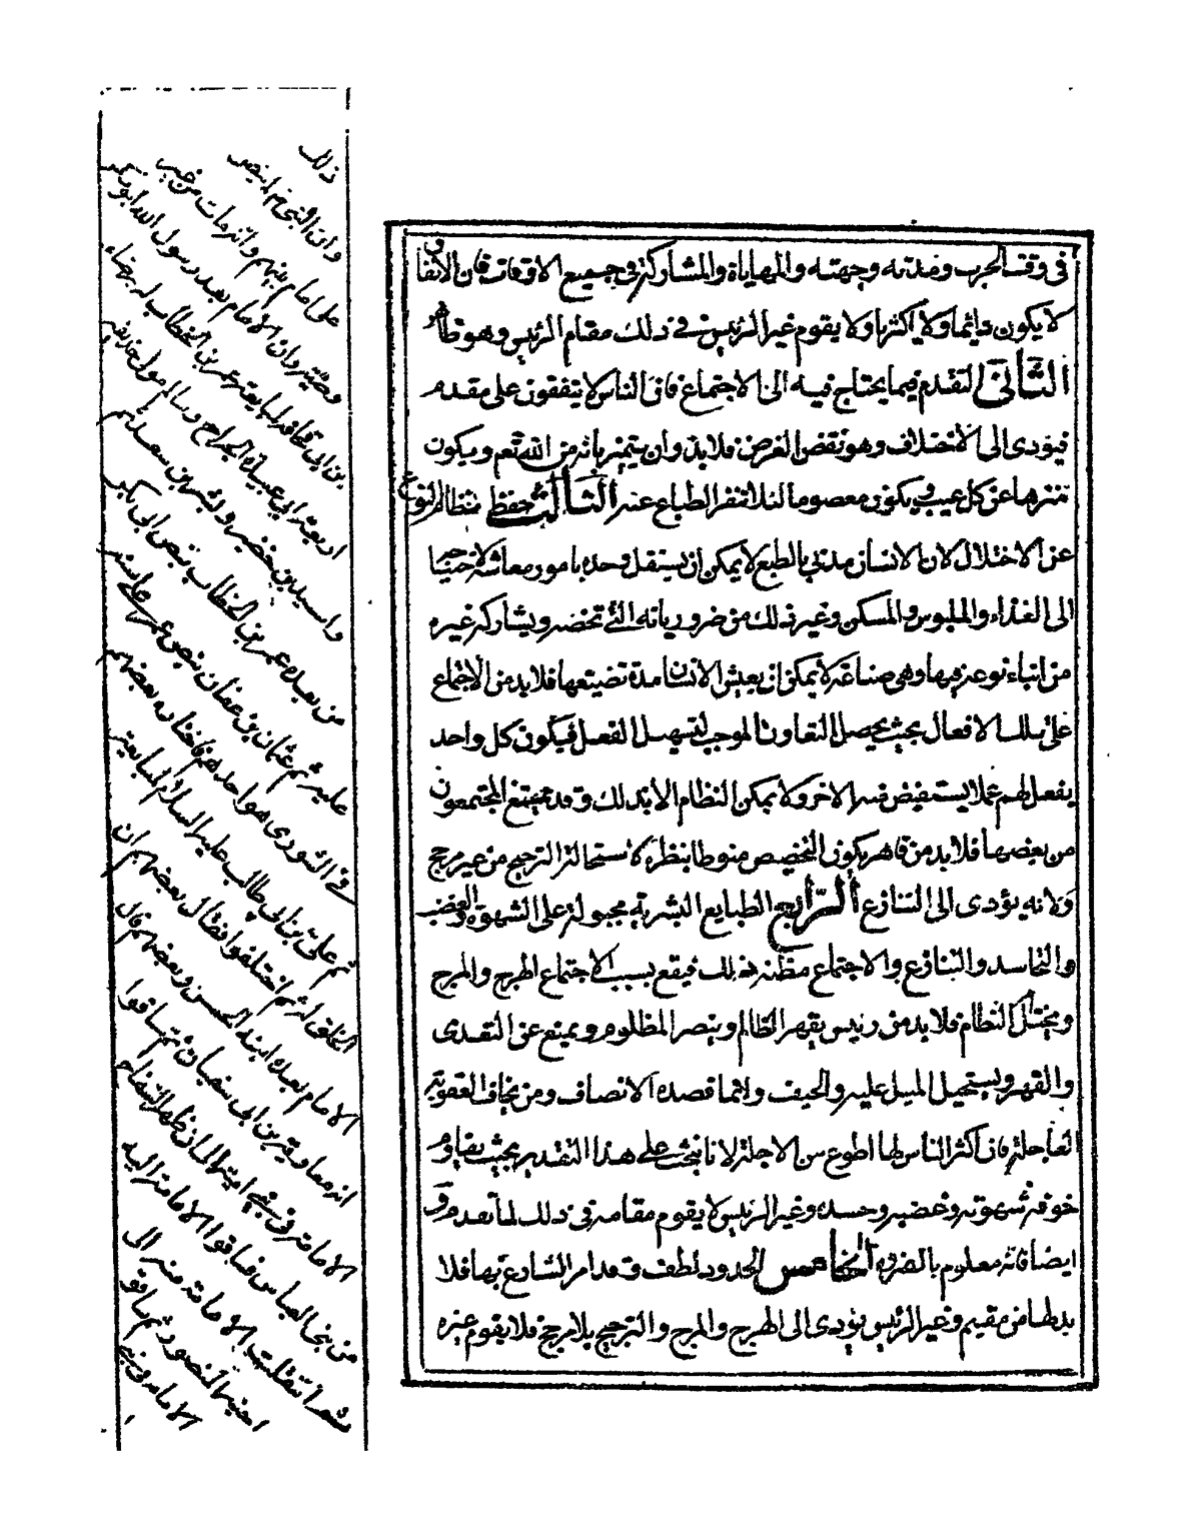 في وقت الحرب ومدته وجهته والمهاياة والمشاركة في جميع الاوقات فان الاتفاق
لا يكون دائما ولا اكثريا ولا يقوم غير الرئيس في ذلك مقام الرئيس وهو ظاهر
الثاني التقدم فيما يحتاج فيه الى الاجتماع فان الناس لا يتفقون على مقدم
فيؤدى الى الاختلاف وهو نقض الغرض فلا بد وان يتميز باثر من الله تعم ويكون
منزها عن كل عيب ويكون معصوما لئلا تنفر الطباع عنه الثالث حفظ نظام النوع
عن الاختلال لان الانسان مدني بالطبع لا يمكن ان يستقل وحده بامور معاشه لاحتياجه
الى الغذاء والملبوس والمسكن وغير ذلك من ضرورياته التي تخصه ويشاركه غيره
من ابناء نوعه فيها وهي صناعة لا يمكن ان يعيش الانسان مدة تصنعها فلا بد من الاجتماع
على تلك الافعال بحيث يحصل التعاون الموجب لتسهيل الفعل فيكون كل واحد
يفعل لهم عملا يستفيض منه الاخر ولا يمكن النظام الا بذلك وقد يمتنع المجتمعون
من بعضها فلا بد من قاهر يكون التخصيص منوطا بنظره لاستحالة الترجيح من غير مرجح
ولانه يؤدى الى التنازع الرابع الطبايع البشرية مجبولة على الشهوة والغضب
والتحاسد والتنازع والاجتماع مظنة ذلك فيقع بسبب الاجتماع الهرج والمرج
ويختل النظام فلا بد من رئيس يقهر الظالم وينصر المظلوم ويمنع عن التعدى
والقهر ويستحيل الميل عليه والحيف وانما قصده الانصاف ومن يخاف العقوبة
العاجلة فان اكثر الناس لها اطوع من الاجلة لانا نبحث على هذا التقدير بحيث يقاوم
خوفه شهوته وغضبه وحسده وغير الرئيس لا يقوم مقامه في ذلك لما تقدم و
ايضا فانه معلوم بالضرورة الخامس الحدود لطف وقد امر الشارع بها فلا
بد لها من مقيم وغير الرئيس يؤدى الى الهرج والمرج والترجيح بلا مرجح فلا يقوم غيره
ذلك
وان النبي م لم ينص
على امام بينهم وانه مات من غير
وصية وان الامام بعد رسول الله ابو بكر
بن ابي قحافة لمبايعة عمر بن الخطاب له برضاء
اربعة ابي عبيدة الجراح وسالم مولى حذيفة
واسيد بن حضير وبشير بن سعد ثم
من بعده عمر بن الخطاب بنص ابى بكر
عليه ثم عثمان بن عفان بنص عمر على ستة
في الشورى هو احدهم فاختاره بعضهم
ثم علي بن ابي طالب عليه السلام لمبايعة
الخلق له ثم اختلفوا فقال بعضهم ان
الامام بعده ابنه الحسن وبعضهم قال
انه معاوية بن ابي سفيان ثم ساقوا
الامامة في بني امية الى ان ظهر السفاح
من بني العباس فساقوا الامامة اليه
ثم انتقلت الامامة منه الى
اخيه المنصور ثم ساقوا
الامامة في